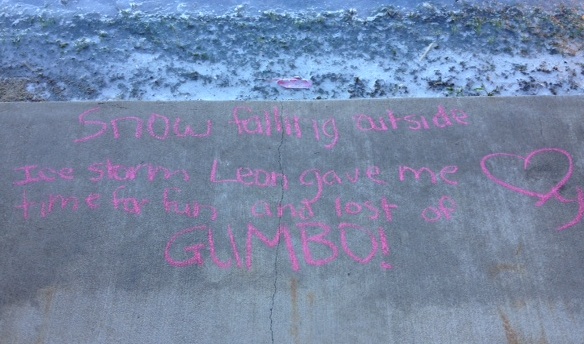 Snow falling outside
Ice storm Leon gave me
time for fun and lost of
GUMBO!